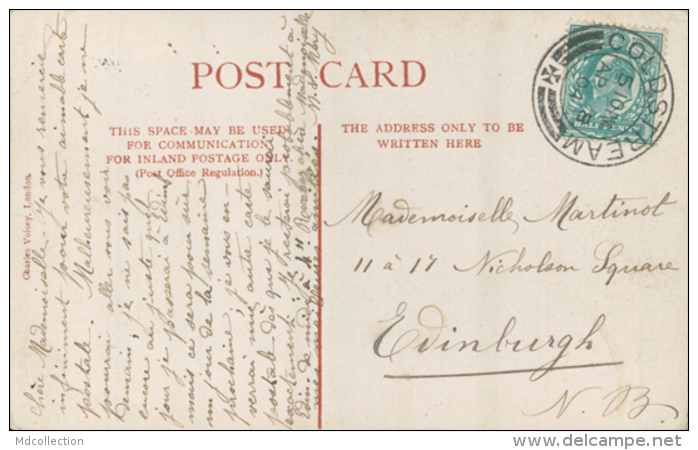 POST CARD
THIS SPACE MAY BE USED
FOR COMMUNICATION
FOR INLAND POSTAGE ONLY.
(Post Office Regulation.)
THE ADDRESS ONLY TO BE
WRITTEN HERE
COLDSTREAM
Mademoiselle Martinot
11 à 17 Nicholson Square
Edinburgh
N. B.
Chère Mademoiselle - je vous remercie
infiniment pour votre aimable carte
postale. Malheureusement je ne
pourrai aller vous voir
demain; je ne sais pas
encore au juste quel
jour je passerai à Edimb
mais ce sera pour sûr
un jour de la semaine
prochaine, je vous en-
verrai une autre carte
postale dès que je le saurai
exactement. Je resterai probablement à
Edin de midi à 4 H
Charles Voisey, London.
Mdcollection
© delcampe.net